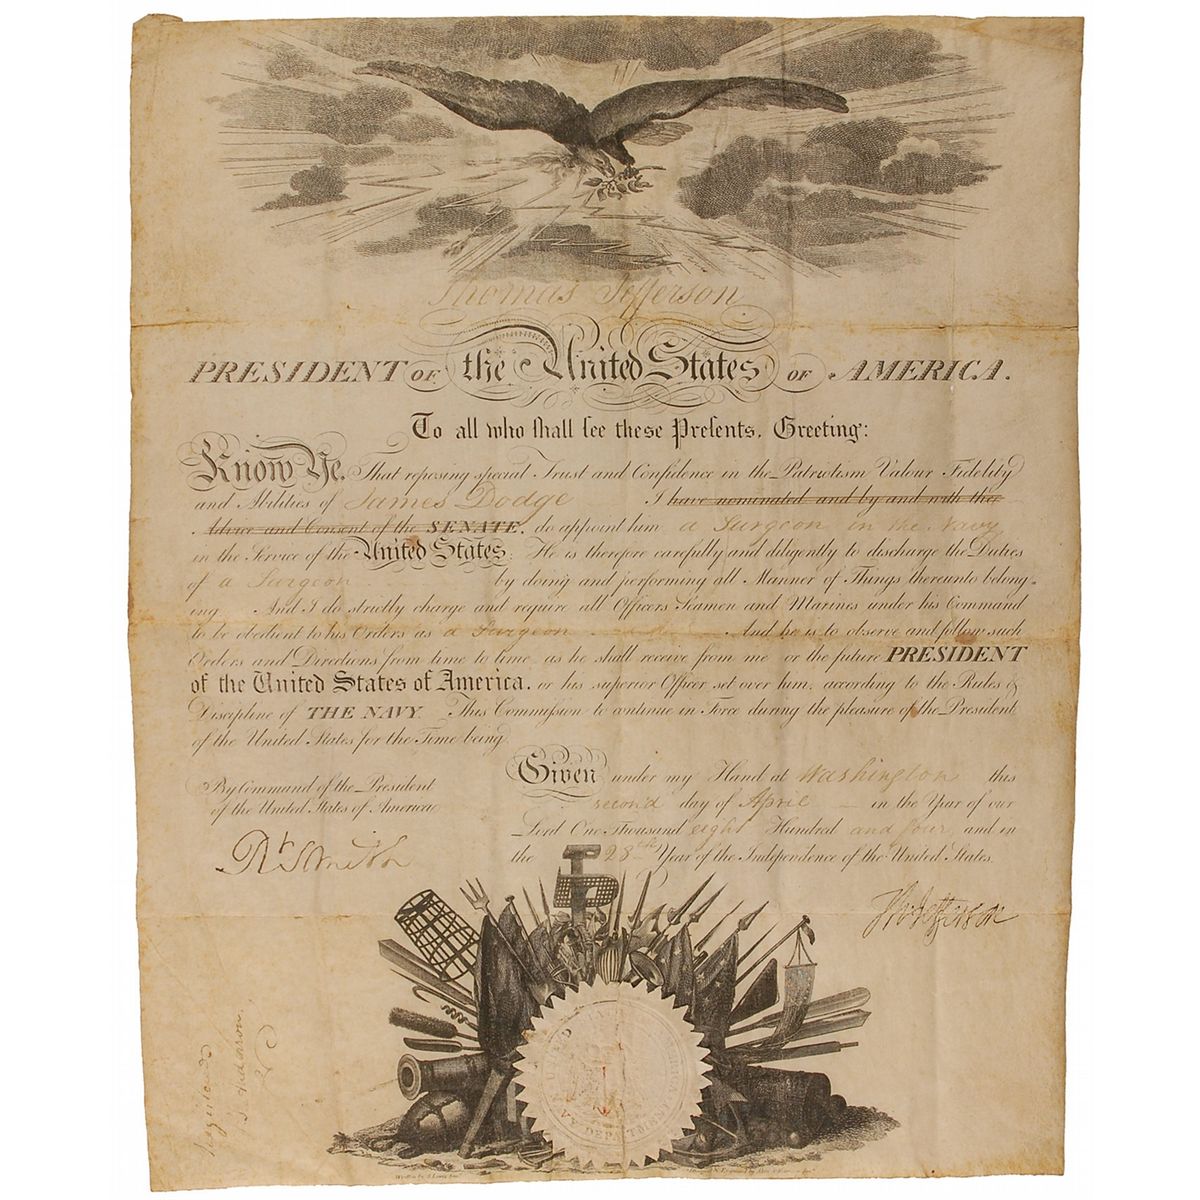 Thomas Jefferson
PRESIDENT OF the United States OF AMERICA.
To all who shall see these Presents, Greeting:
Know Ye, That reposing special Trust and Confidence in the Patriotism Valour Fidelity
and Abilities of James Dodge I have nominated and by and with the
Advice and Consent of the SENATE, do appoint him a Surgeon in the Navy
in the Service of the United States: He is therefore carefully and diligently to discharge the Duties
of a Surgeon by doing and performing all Manner of Things thereunto belong-
ing. And I do strictly charge and require all Officers Seamen and Marines under his Command
to be obedient to his Orders as a Surgeon And he is to observe and follow such
Orders and Directions from time to time, as he shall receive from me or the future PRESIDENT
of the United States of America, or his superior Officer set over him, according to the Rules &
Discipline of THE NAVY. This Commission to continue in Force during the pleasure of the President
of the United States for the Time being.
Given under my Hand at Washington this
second day of April in the Year of our
Lord One Thousand eight Hundred and four, and in
the 28th Year of the Independence of the United States.
By Command of the President
of the United States of America
Rt Smith
Th Jefferson
NAVY DEPARTMENT
UNITED STATES
Registered